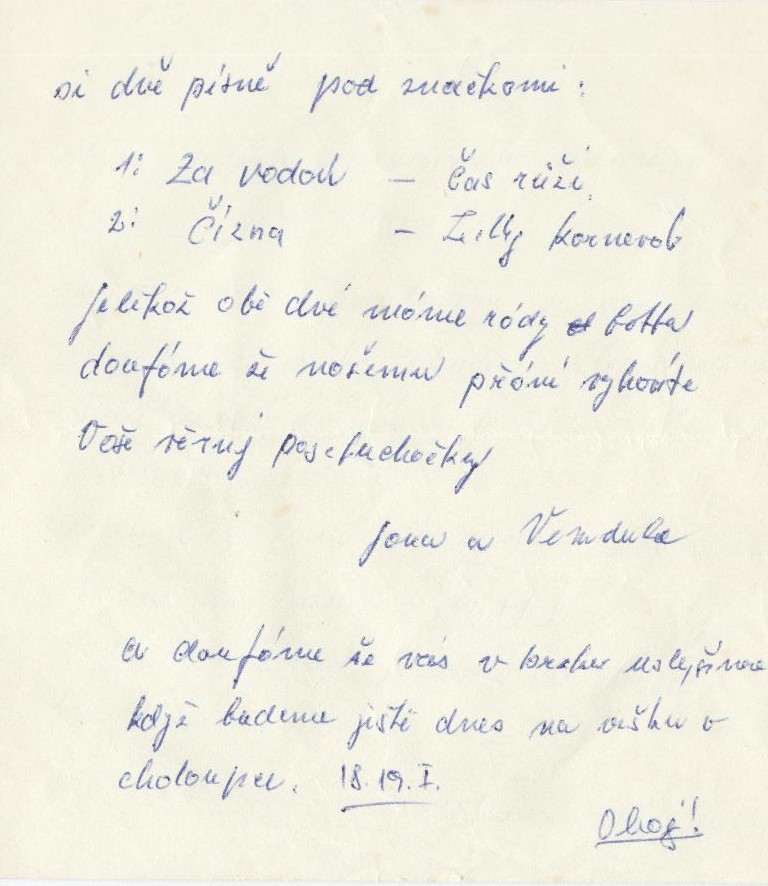 si dvě písně pod značkami:
1: Za vodou – Čas růží.
2: Čizna –
jelikož obě dvě máme rády
doufáme že našemu přání vyhovíte
Vaše věrný posluchačky
Jana a Vendula
a doufáme že vás v brzku uslyšíme
když budeme ještě dnes na v
chaloupce. 18.19.I.
Ahoj!